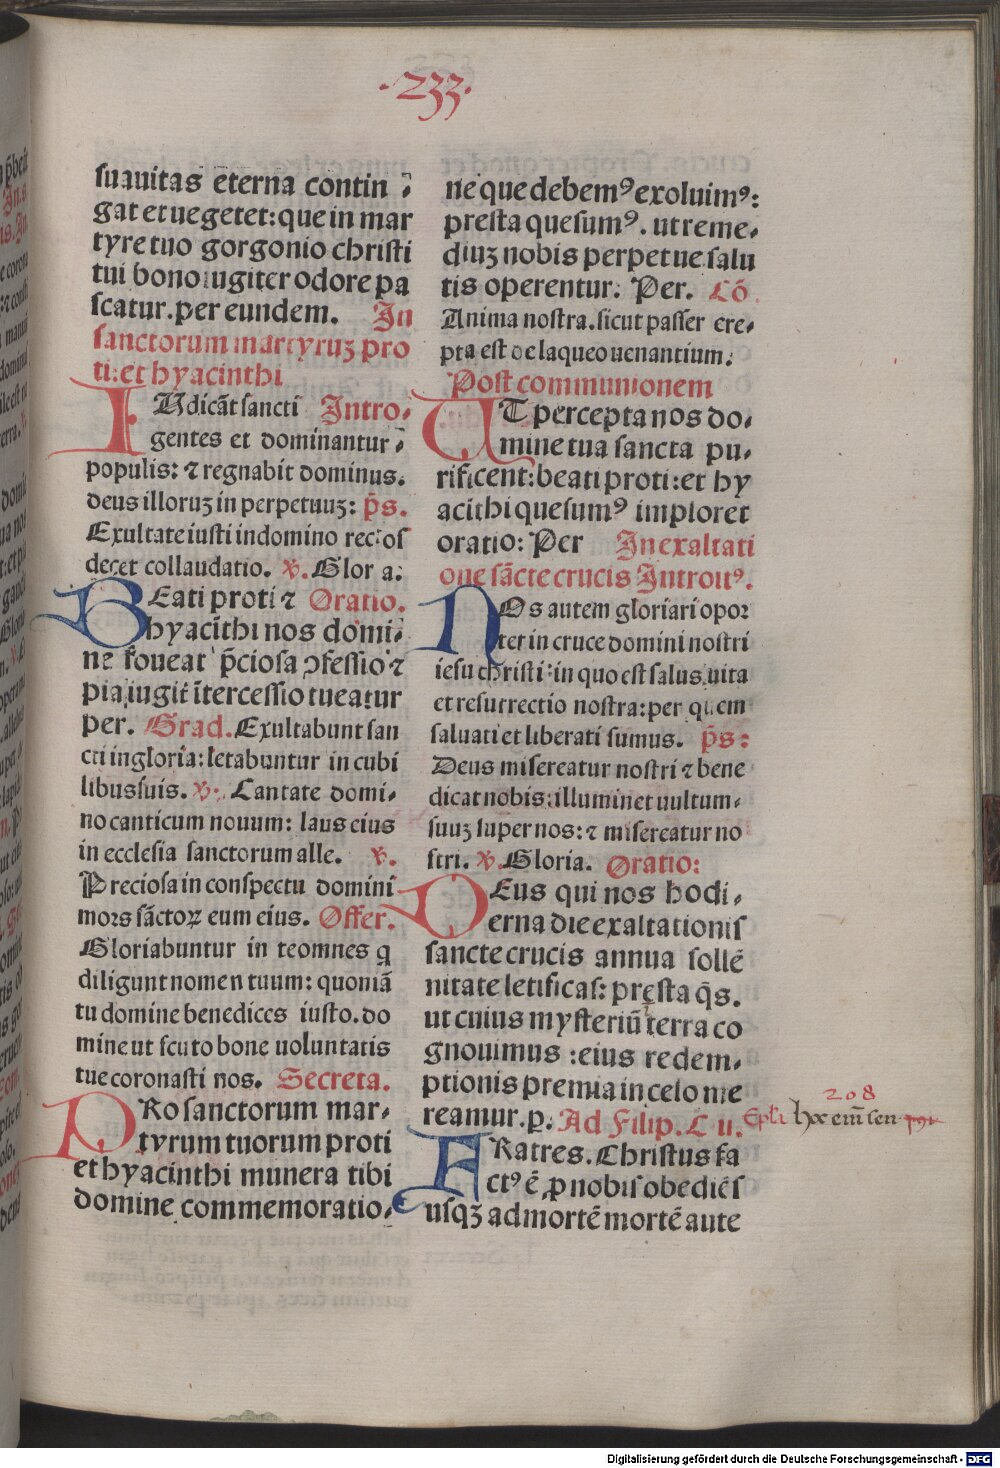 ·233·
suauitas eterna contin ;
gat et uegetet: que in mar
tyre tuo gorgonio christi
tui bono iugiter odore pa
scatur. per eundem. In
sanctorum martyruꝫ pro
ti: et hyacinthi
IVdicāt sancti Intro.
gentes et dominantur ;
populis: ⁊ regnabit dominus.
deus illoruꝫ in perpetuuꝫ: p̄s.
Exultate iusti in domino rectos
decet collaudatio. ꝟ. Glor a:
BEati proti ⁊ Oratio.
hyacīthi nos domi;
ne foueat p̄ciosa ꝯfessio ⁊
pia iugit̄ ītercessio tueatur
per. Grad. Exultabunt san
cti in gloria: letabuntur in cubi
libus suis. ꝟ. Cantate domi-
no canticum nouum: laus eius
in ecclesia sanctorum alle. ꝟ.
Preciosa in conspectu domini
mors sāctoꝝ eum eius. Offer.
Gloriabuntur in te omnes q
diligunt nomen tuum: quoniā
tu domine benedices iusto. do
mine ut scuto bone uoluntatis
tue coronasti nos. Secreta.
PRo sanctorum mar,
tyrum tuorum proti
et hyacinthi munera tibi
domine commemoratio,
ne que debemꝰ exoluimꝰ:
presta quesumꝰ. ut reme,
diuꝫ nobis perpetue salu
tis operentur. Per. Cō
Anima nostra. sicut passer ere,
pta est de laqueo uenantium.
Post communionem
UT percepta nos do,
mine tua sancta pu,
rificent: beati proti: et hy
acithi quesumꝰ imploret
oratio: Per In exaltati
one sācte crucis Introitꝰ.
NOs autem gloriari opor
tet in cruce domini nostri
iesu christi: in quo est salus uita
et resurrectio nostra: per quem
saluati et liberati sumus. p̄s:
Deus misereatur nostri ⁊ bene
dicat nobis: illuminet uultum,
suuꝫ super nos: ⁊ misereatur no
stri. ꝟ. Gloria. Oratio:
DEus qui nos hodi,
erna die exaltationis
sancte crucis annua sollē
nitate letificas: pręsta q̄s.
ut cuius mysteriū terra co
gnouimus: eius redem,
ptionis premia in celo me
reamur. p. Ad Filip. C u.
FRatres. Christus fa
ctꝰ ē ꝓ nobis obediēs
usqꝫ ad mortē mortē aute
208
Epl̄i hx em̄ sen
Digitalisierung gefördert durch die Deutsche Forschungsgemeinschaft - DFG